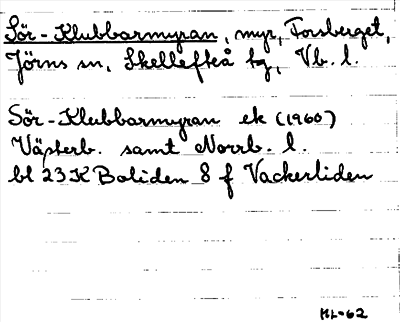 Sör-Klubbarmyran, myr, Forsberget,
Jörns sn, Skellefteå tg, Vb. l.
Sör-Klubbarmyran ek (1960)
Västerb. samt Norrb. l.
bl 23K Boliden 8 f Vackerliden
HL-62